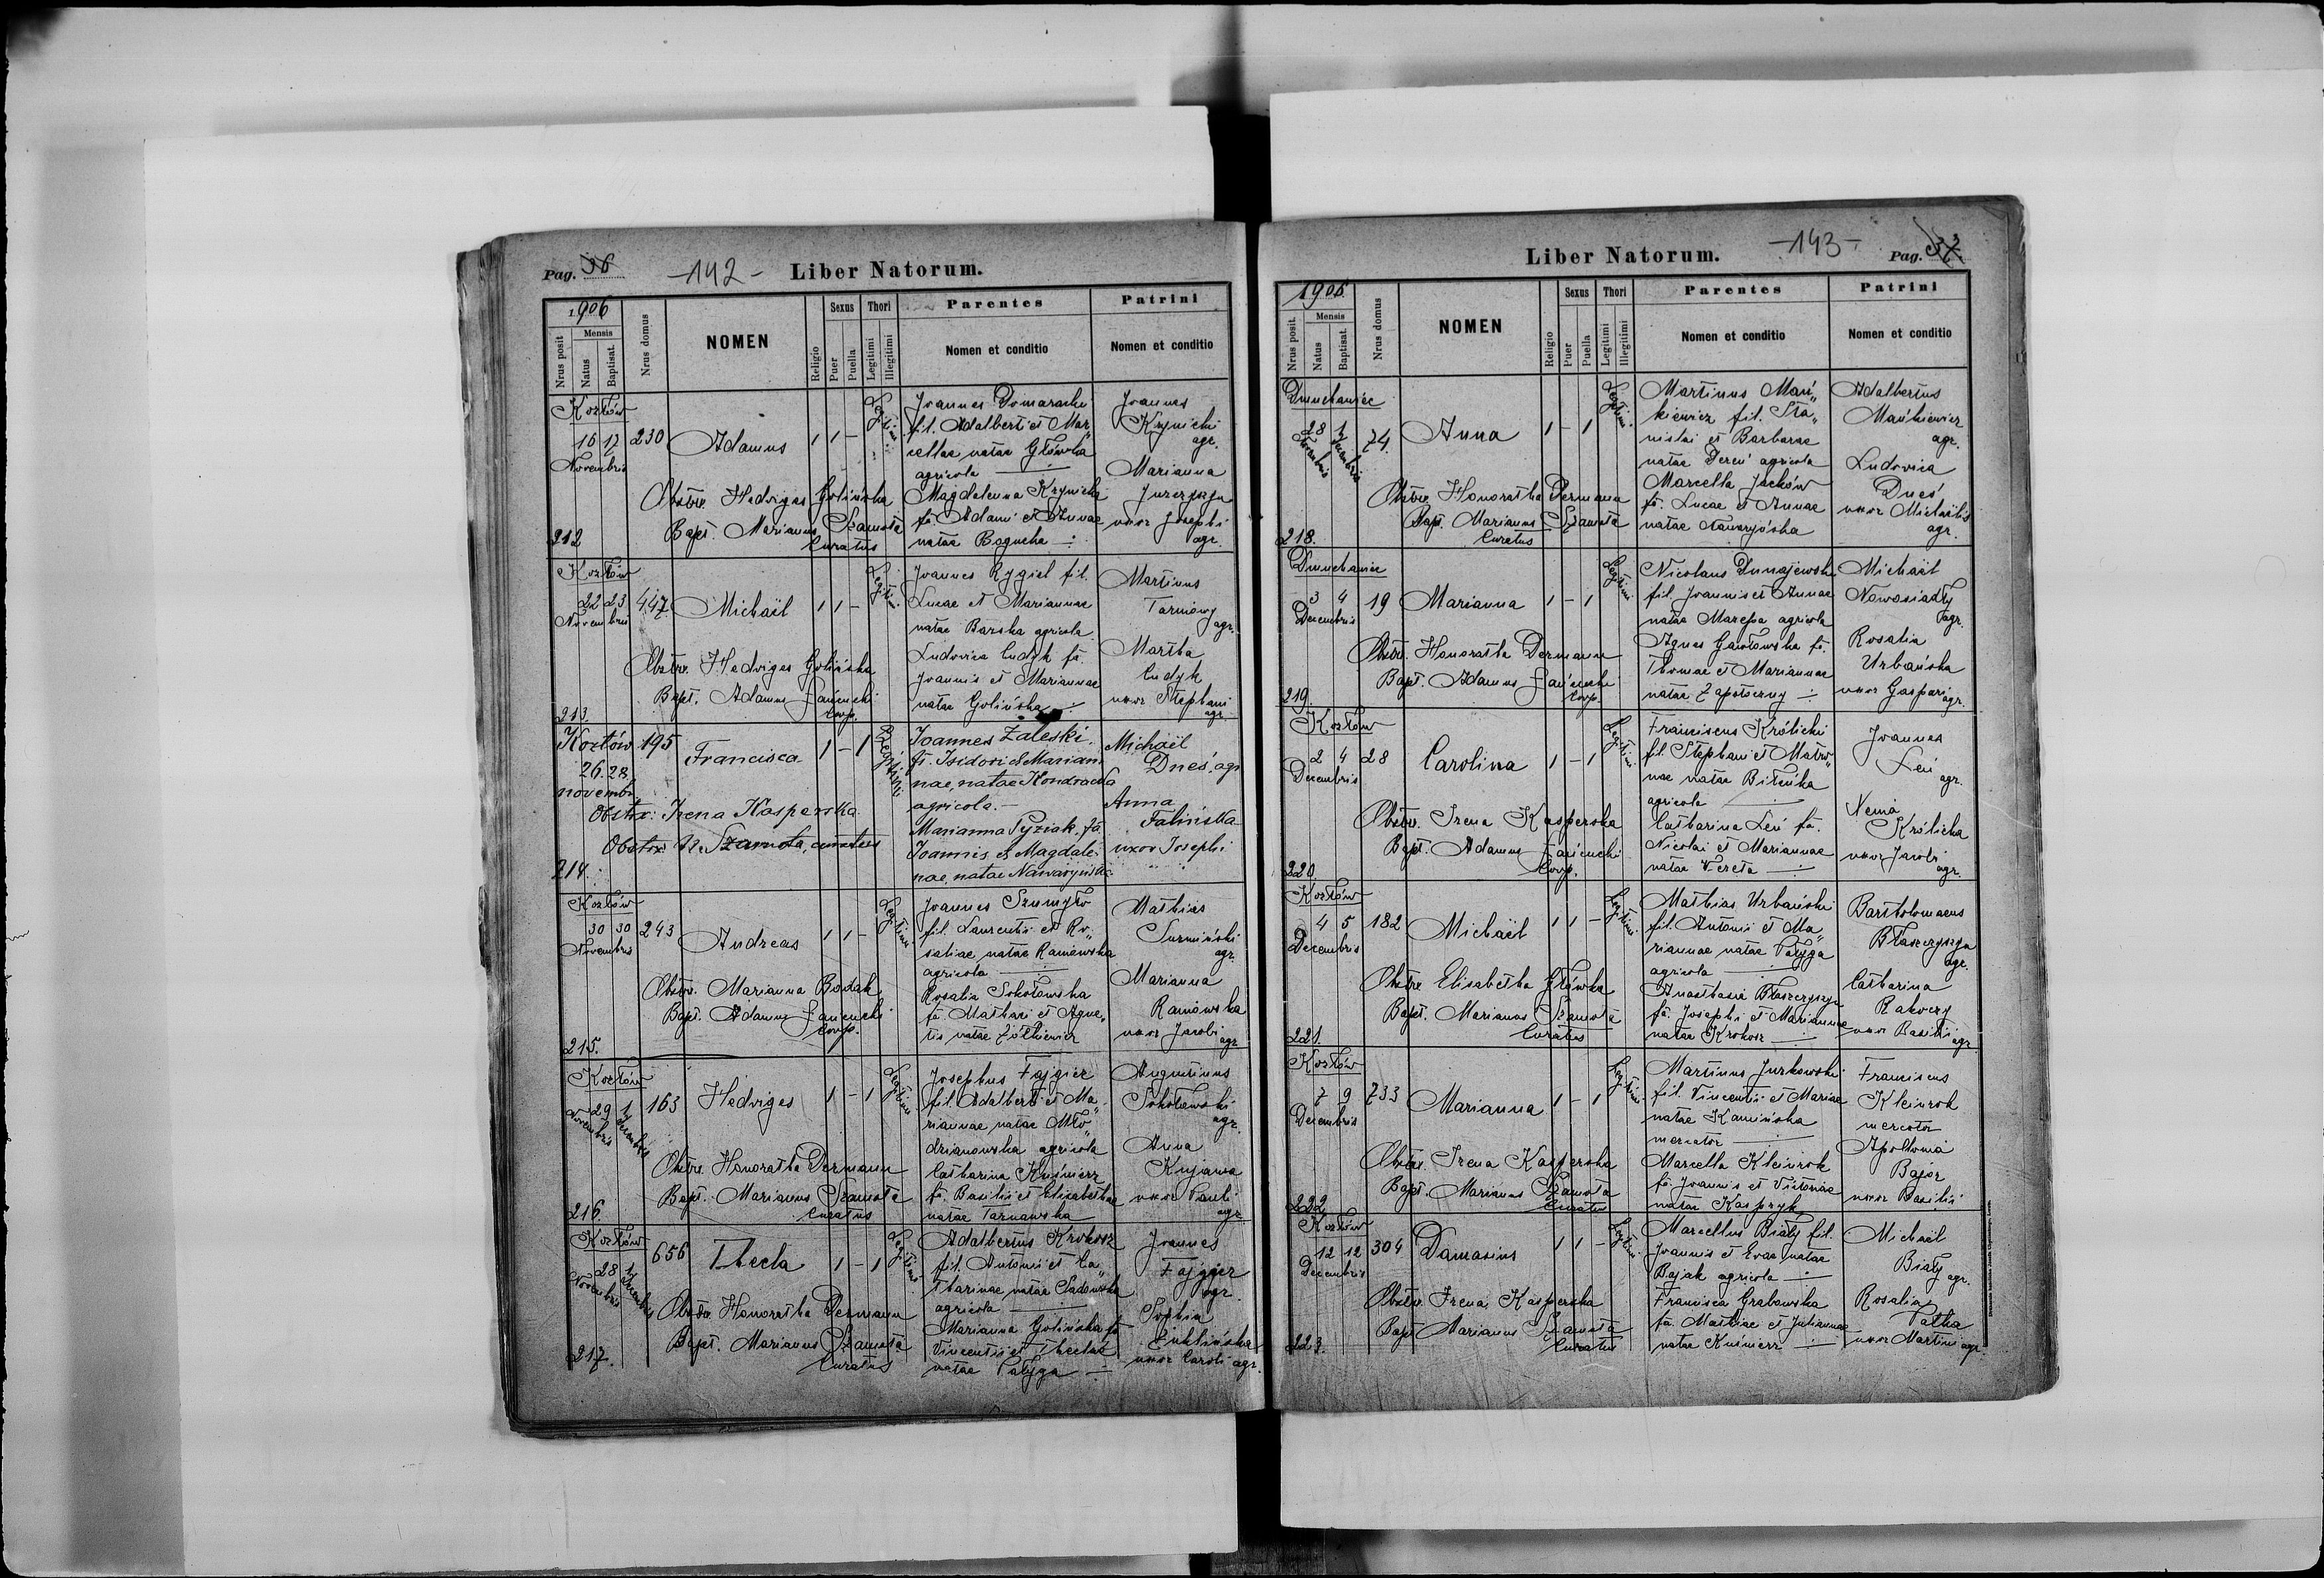 Pag. 36 -142- Liber Natorum.
1906
Nrus posit
Mensis
Natus
Baptisat.
Nrus domus
NOMEN
Religio
Sexus
Puer
Puella
Thori
Legitimi
Illegitimi
Parentes
Nomen et conditio
Patrini
Nomen et conditio
Kozłów
16 17 230 Adamus 1 1 - Legitimi
Novembris
Obstetr. Hedviges Golińska
Bapt. Marianus Szamota
Curatus
212
Joannes Domaracki
fil. Adalberti et Mar„
cellae natae Główka
agricola
Magdalenna Krynicka
fa. Adami et Annae
natae Bogucka
Joannes
Krynicki
agr.
Marianna
Juzezyszyn
uxor Josephi
agr.
Kozłów
22 23 447. Michaël 1 1 - Legitimi
Novembris
Obstetr. Hedviges Golińska
Bapt. Adamus Łańcucki
Coop.
213.
Joannes Rygiel fil.
Lucae et Mariannae
natae Barska agricola
Ludovica Cudyk fa.
Joannis et Mariannae
natae Golińska
Martinus
Tarnowy
agr.
Martha
Cudyk
uxor Stephani
agr.
Kozłów 195 Francisca 1 - 1
26. 28.
novembr.
Obstetr: Irena Kasperska
Obstetr: M. Szamota, curatus
214.
Joannes Zaleski.
fi. Isidori & Marian„
nae, natae Kondracka
agricola.
Marianna Pyziak, fa
Joannis & Magdale„
nae, natae Nawaryńska
Michaël
Dneś, agr
Anna
Falińska
uxor Josephi
Kozłów
30 30 243 Andreas 1 1 - Legitimi
Novembris
Obstetr. Marianna Bosdak
Bapt. Adamus Łańcucki
Coop.
215.
Joannes Szumyło
fil. Laurentii et Ro„
saliae natae Raniowska
agricola
Rosalia Sokołowska
fa. Mathaei et Agne„
tis natae Żółkiewicz
Mathias
Surmiński
agr.
Marianna
Raniowska
uxor Jacobi
agr.
Kozłów
29 1 163 Hedviges 1 - 1 Legitimi
Novembris Decembris
Obstetr. Honoratha Dermann
Bapt. Marianus Szamota
Curatus
216.
Josephus Fajgier
fil. Adalberti et Ma„
riannae natae Mło„
dzianowska agricola
Catharina Kuśnierz
fa. Basilii et Elisabethae
natae Tarnawska
Augustinus
Sokołowski
agr.
Anna
Kujawa
uxor Pauli
agr.
Kozłów
28 1 656 Thecla 1 - 1 Legitimi
Novembris Decembris
Obstetr. Honoratha Dermann
Bapt. Marianus Szamota
Curatus
217.
Adalbertus Krokosz
fil. Antonii et Ca„
tharinae natae Sadowska
agricola
Marianna Golińska fa
Vincentii et Theclae
natae Patyga
Joannes
Fajgier
agr.
Sophia
uxor Caroli agr.
Liber Natorum. -143- Pag.
1906
Nrus posit.
Mensis
Natus
Baptisat.
Nrus domus
NOMEN
Religio
Sexus
Puer
Puella
Thori
Legitimi
Illegitimi
Parentes
Nomen et conditio
Patrini
Nomen et conditio
Dmuchawiec
28 1 74. Anna 1 - 1 Legitimi
Novembris Decembris
Obstetr. Honoratha Dermann
Bapt. Marianus Szamota
Curatus
218.
Martinus Mań„
kiewicz fil. Sta„
nislai et Barbarae
natae Dereń agricola
Marcella Jacków
fa. Lucae et Annae
natae Nawaryńska
Adalbertus
Mańkiewicz
agr.
Ludovica
Dneś
uxor Michaëlis
agr.
Dmuchawiec
3 4 19 Marianna 1 - 1 Legitimi
Decembris
Obstetr. Honoratha Dermann
Bapt. Adamus Łańcucki
Coop.
219.
Nicolaus Dunajewski
fil. Joannis et Annae
natae Mazepa agricola
Agnes Gawłowska fa.
Thomae et Mariannae
natae Zapotoczny
Michaël
Nowosiadły
agr.
Rosalia
Urbańska
uxor Gaspari
agr.
Kozłów
2 4 28 Carolina 1 - 1 Legitimi
Decembris
Obstetr. Irena Kasperska
Bapt. Adamus Łańcucki
Coop.
220.
Franciscus Królicki
fil. Stephani et Matro„
nae natae Bilińska
agricola
Catharina Leń fa.
Nicolai et Mariannae
natae Wereta
Joannes
Leń
agr.
Królicka
uxor Jacobi
agr.
Kozłów
4 5 182 Michaël 1 1 - Legitimi
Decembris
Obstetr. Elisabetha Główka
Bapt. Marianus Szamota
Curatus
221.
Mathias Urbański
fil. Antonii et Ma„
riannae natae Patyga
agricola
Anasthasia Błaszczyszyn
fa. Josephi et Mariannae
natae Krokosz
Bartholomaeus
Błaszczyszyn
agr.
Catharina
Rakoczy
uxor Basilii
agr.
Kozłów
7 9 733 Marianna 1 - 1 Legitimi
Decembris
Obstetr. Irena Kasperska
Bapt. Marianus Szamota
Curatus
222
Martinus Jurkowski
fil. Vincentii et Mariae
natae Kamińska
mercator
Marcella Kleinrok
fa. Joannis et Victoriae
natae Kasprzyk
Franciscus
Kleinrok
mercator
Apollonia
Bajor
uxor Basilii
Kozłów
12 12 304 Damasius 1 1 - Legitimi
Decembris
Obstetr. Irena Kasperska
Bapt. Marianus Szamota
Curatus
223.
Marcellus Biały fil.
Joannis et Evae natae
Bajak agricola
Francisca Grabowska
fa. Mathiae et Juliannae
natae Kuśnierz
Michaël
Biały
agr.
Rosalia
Patka
uxor Martini agr.